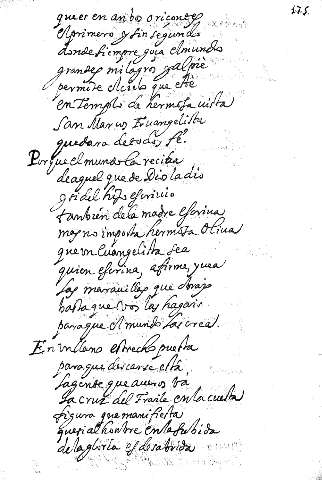 175.
que es en anbos oricontes
el primero y sin segundo
donde siempre goça el mundo
grandes milagros y al pie
permite el cielo que esté
en Templo de hermosa vista
San Marcos Evangelista
quedara de todos fe.
Porque el mundo la reciba
de aquel que de Dios la dio
y si del hijo escrivio
tambien de la madre escriva
mas no importa hermosa Oliva
que un Evangelista sea
quien escriva, afirme, y vea
las maravillas que obrais
hasta que vos las hagais
para que el mundo las crea.
En un llano estrecho puesta
para que descanse está
la gente que a veros va
la cruz del fraile en la cuesta
figura que manifiesta
que si al honbre en la subida
de la gloria es desabrida